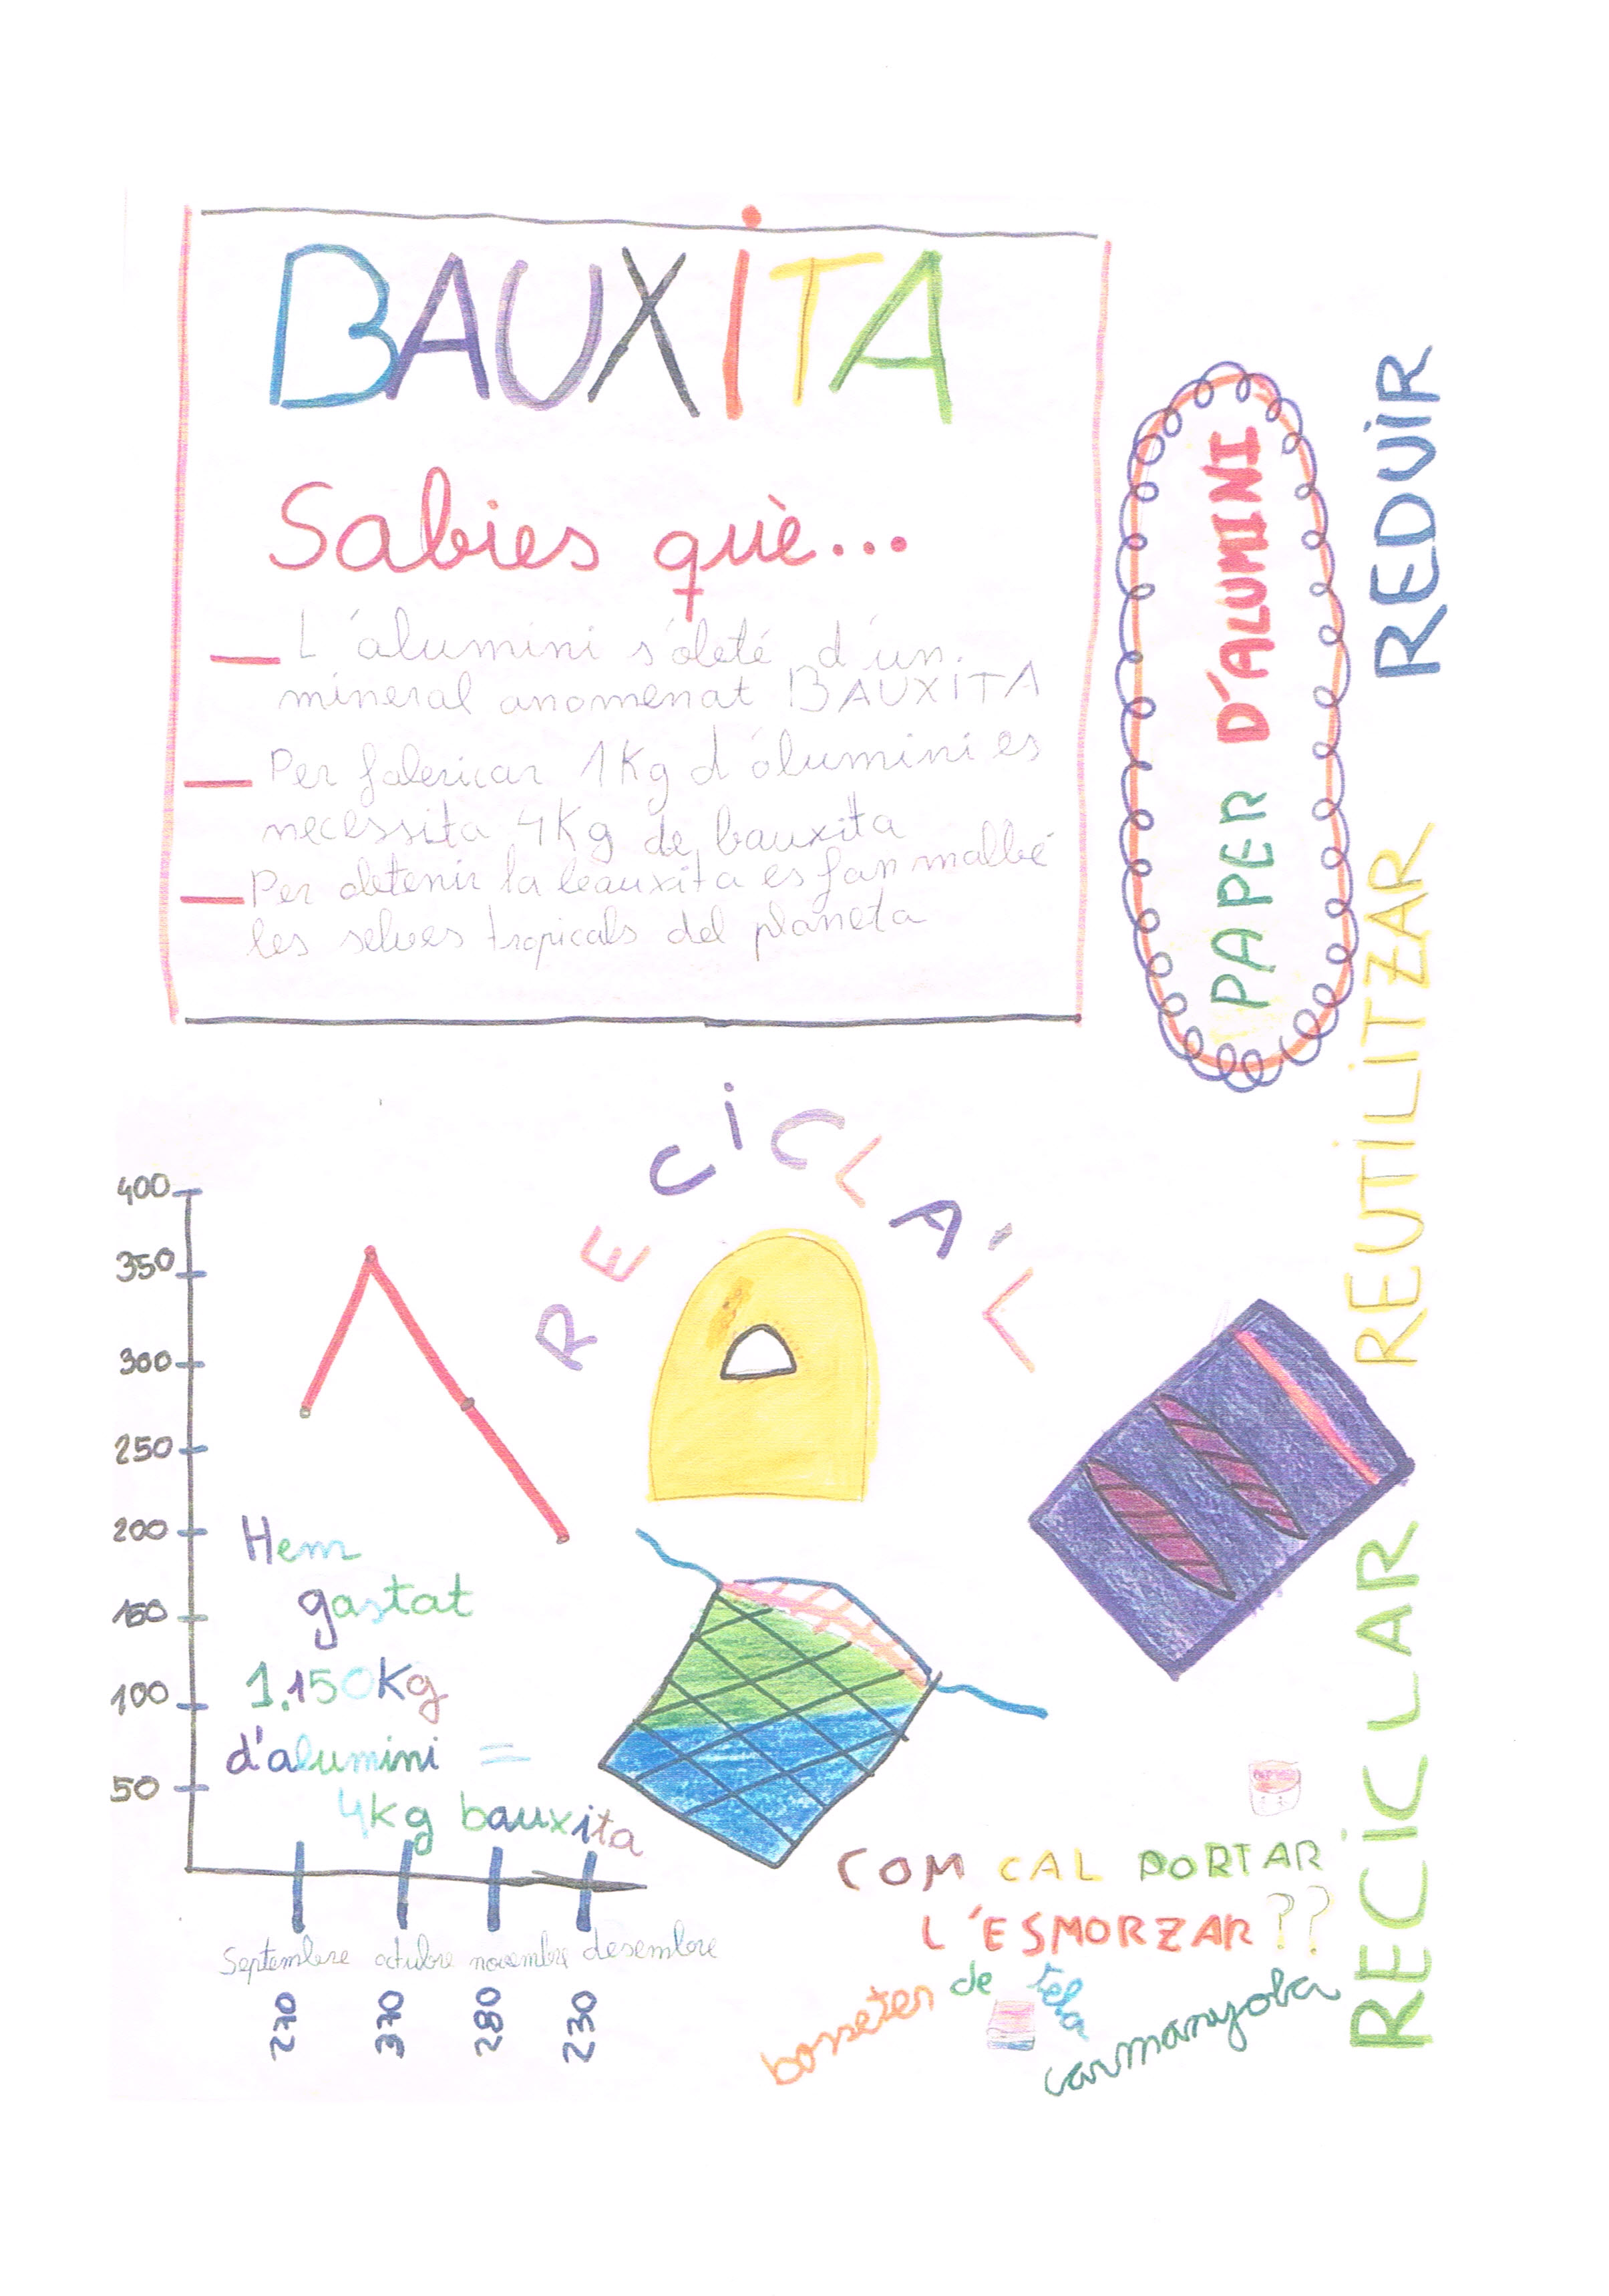 BAUXITA
Sabies què...
L'alumini s'obté d'un
mineral anomenat BAUXITA
Per fabricar 1Kg d'alumini es
necessita 4Kg de bauxita
Per obtenir la bauxita es fan malbé
les selves tropicals del planeta
PAPER D'ALUMINI
REDUIR
REUTILITZAR
RECICLAR
RECICLA'L
400
350
300
250
200
150
100
50
Hem
gastat
1.150Kg
d'alumini =
4kg bauxita
Septembre octubre novembre desembre
270 370 280 230
COM CAL PORTAR
L'ESMORZAR??
bossetes de tela
carmanyola